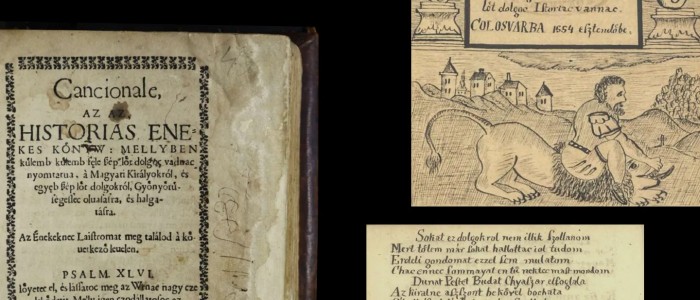 Cancionale,
AZ AZ,
HISTORIAS ENE-
KES KÖNYW: MELLYBEN
külemb külemb féle ſép lőt dolgoc vadnac
nyomtatua, à Magyari Királyokról, és
egyéb ſép lőt dolgokról, Gyönyörű-
ségeſſec oluaſásra, és halga-
tásra.
Az Énekeknec Laiſtromat meg találod à kö-
uetkező leuelen.
PSALM. XLVI.
Iőyetec el, és láſſatoc meg az Wrnac nagy cze
lőt dolgoc Iſtoriac vannac.
COLOSVARBA 1554 eſztendőbe.
Sokat ez dolgokrol nem illik ſzollanom
Mert tőlem már ſokat hallottac iol tudom
Erdeli gondomat ezzel ſem mulatom
Chac ennec ſommayat en tű nektec maſt mondom
Dunat Peſtet Budat Chyaſzar elfoglala
Az kiralne aſzſzont